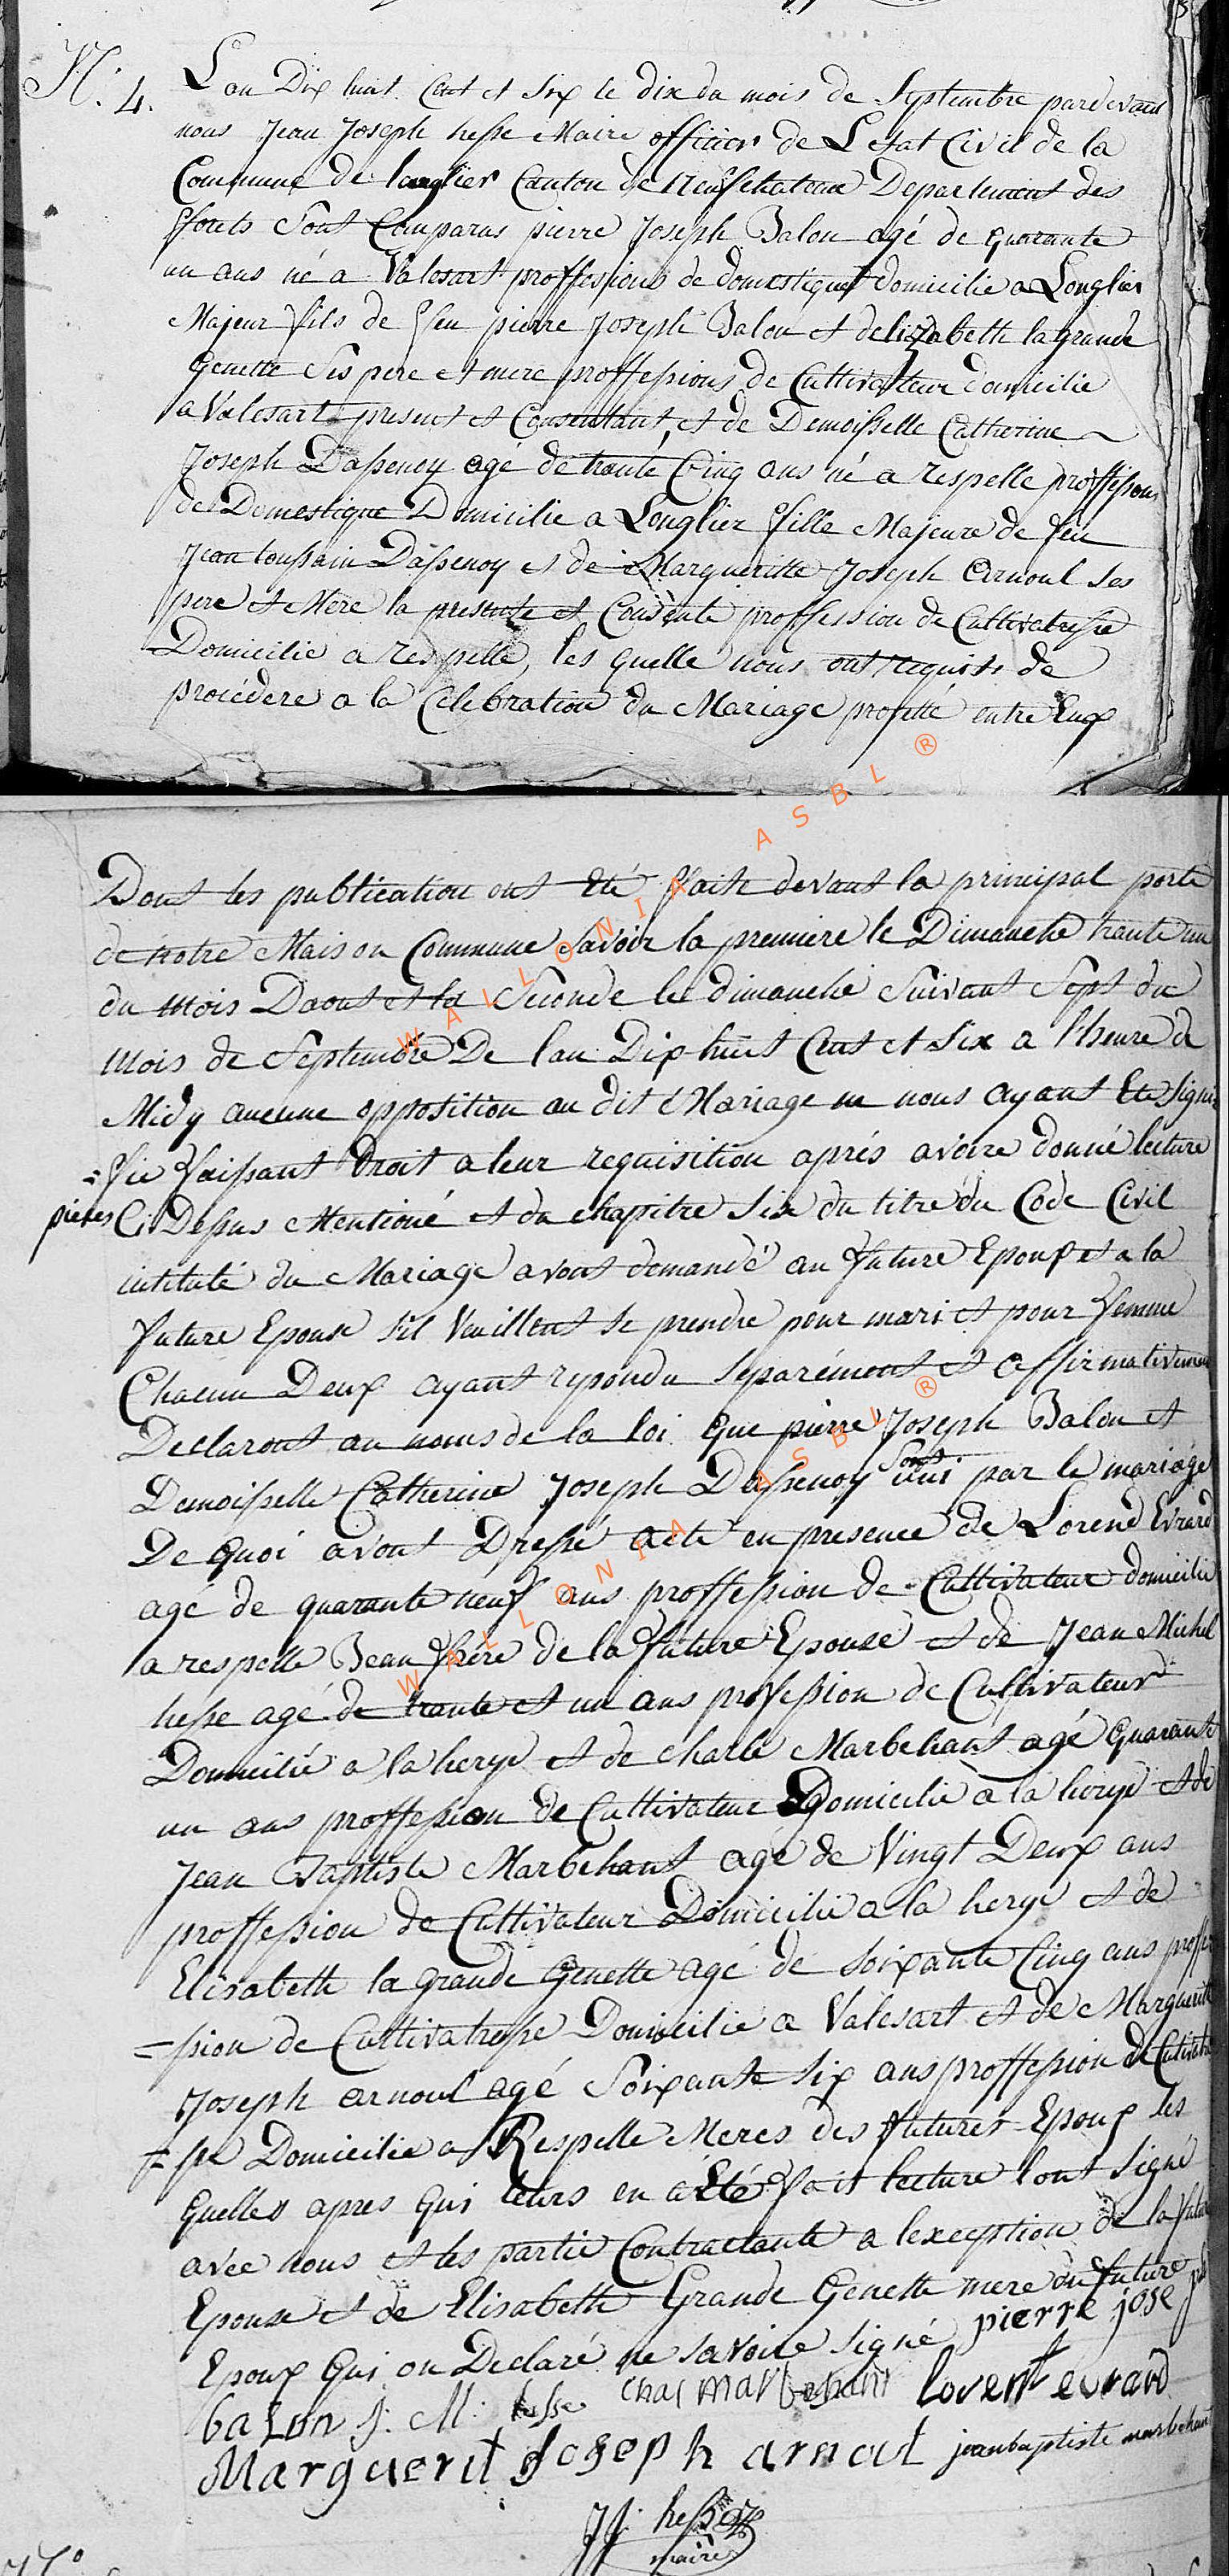 N.° 4. L'an Dix huit Cent et Six le dix du mois de Septembre pardevant
nous Jean Joseph hesse Maire officier de L'Etat Civil de la
Commune de longlier Canton de Neufchateau Departement des
fforets Sont Comparus pierre Joseph Balon agé de quarante
un ans né a Valesart proffessions de domestique domicilie a Longlier
Majeur fils de ffeu pierre Joseph Balon et delizabette la grande
Genette Ses pere et mere proffessions de Cultivateur domicilie
a Valesart present et Consentant, et de Demoisselle Catherine
Joseph Dassenoy agé de trante Cinq ans né a respelle proffessions
de Domestique Domicilie a Longlier ffille Majeure de feu
Jean toussain Dassenoy et de Margueritte Joseph Arnoul Ses
pere et Mere la presente et Consente proffession de Cultivatresse
Domicilie a respelle, les quelle nous ont requist de
procédere a la Celebration du Mariage projetté entre Eux
Dont les publication ont Eté ffaite devant la principal porte
de notre Maison Commune Savoir la premiere le Dimanche trante un
du mois Daout et la Seconde le dimanche Suivant Sept du
mois de Septembre De l'an Dix huit Cent et Six a l'heure de
Midy aucune opposition au dit Mariage ne nous ayant Eté Signi
=fie ffaissant Droit a leur requisition aprés avoire donné lecture
pieces Ci Dessus Mentioné et du Chapitre Six du titre du Code Civil
intitulé du Mariage avont demandé au ffuture Epoux et a la
ffuture Epouse S'il Veuillent se prendre pour mari et pour ffemme
Chacun Deux ayant repondu Separément et affirmativement
Declaront au noms de la loi que pierre Joseph Balon et
Demoisselle Catherine Joseph Dassenoy Sont uni par le mariage
De quoi avont Dressé acte en presence de Lorend Evrard
agé de quarante neuf ans proffession de Cultivateur domicilie
a respelle Beau ffrére de la ffuture Epouse et de Jean Michel
hesse agé de trante et un ans profession de Cultivateur
Domicilié a la herye et de Charle Marbehant agé quarante
un ans proffession de Cultivateur Domicilie a la herye et de
Jean Baptiste Marbehant agé de Vingt Deux ans
proffession de Cultivateur Domicilie a la herye et de
Elisabette la grande Genette agé de Soixante Cinq ans proffe
=ssion de Cultivatresse Domicilie a Valesart et de Marguerite
Joseph arnoul agé Soixante Six ans proffession de Cultivatre
=sse Domicilie a Respelle Meres des ffutures Epoux les
quelles apres qui leurs en a Eté ffait lecture l'ont Signé
avec nous et les partie Contractante a l'exception de la ffuture
Epouse et de Elisabette Grande Genette mere du ffuture
Epoux qui on Declaré ne savoire signé pierre joseph
baLon J: M: hesse Chal Marbehant lorent evrard
Marguerit Joseph arnoul jeanbaptiste marbehant
JJ. hesse
maire
WALLONIA ASBL ®
WALLONIA ASBL ®